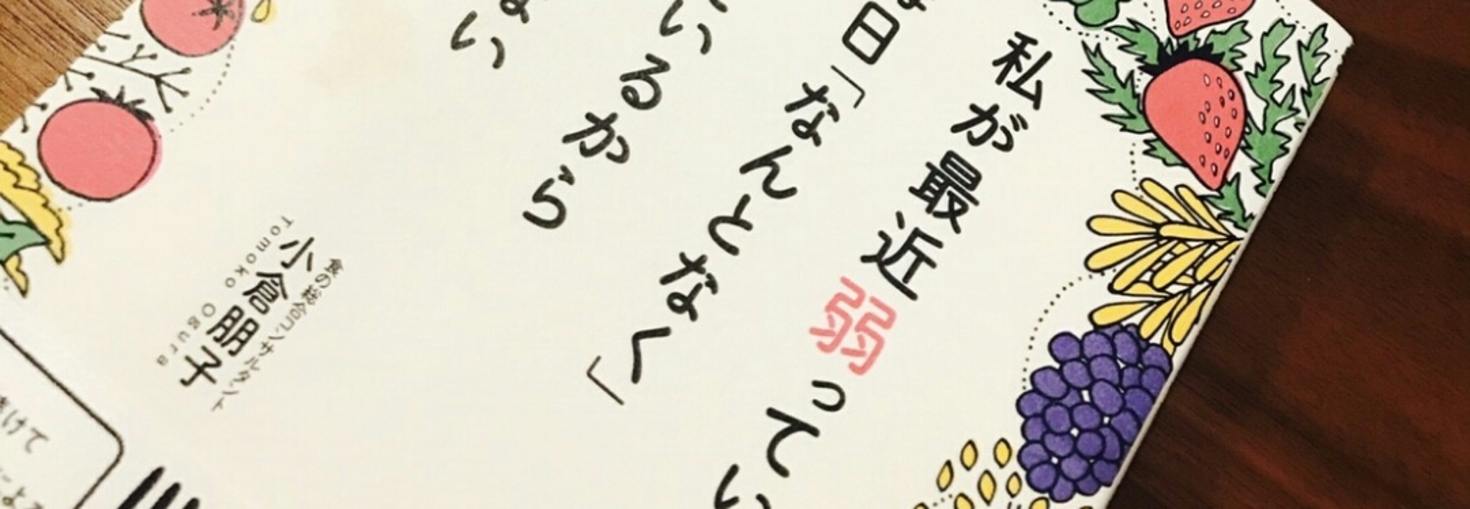 私が最近弱ってい
日「なんとなく」
いるから
ない
食の総合コンサルタント
小倉朋子
Tomoko Ogura
きけて
による